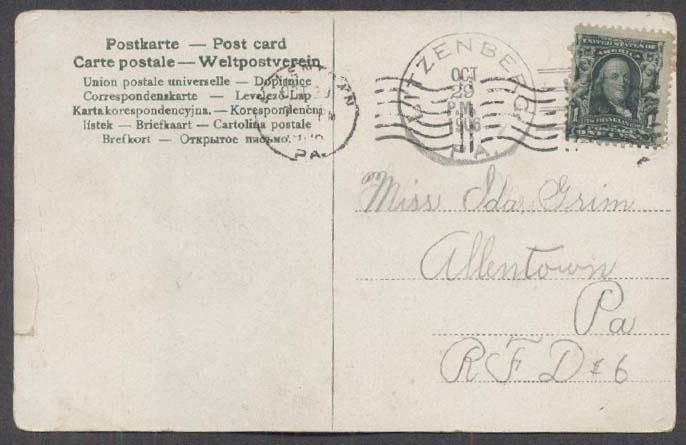 Postkarte — Post card
Carte postale — Weltpostverein
Union postale universelle — Dopisnice
Correspondenskarte — Levelező-Lap
Karta korespondencyjna. — Korespondenční
lístek — Briefkaart — Cartolina postale
Brefkort — Открытое письмо.
PA.
LITZENBERG
OCT
29
P.M.
1906
PA.
UNITED STATES OF
AMERICA
1
1
Miss Ida Grim
Allentown
Pa
R F D #6